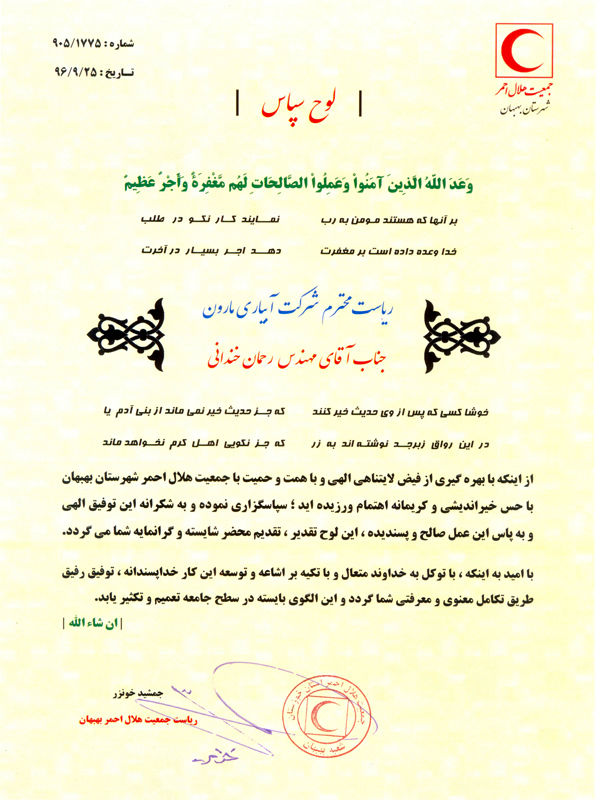 شماره : ۹۰۵/۱۷۷۵
تاریخ : ۹۶/۹/۲۵
جمعیت هلال احمر
شهرستان بهبهان
| لوح سپاس |
وَعَدَ اللّهُ الَّذِينَ آمَنُواْ وَعَمِلُواْ الصَّالِحَاتِ لَهُم مَّغْفِرَةٌ وَأَجْرٌ عَظِيمٌ
بر آنها که هستند مومن به رب نمایند کار نکو در طلب
خدا وعده داده است بر مغفرت دهد اجر بسیار در آخرت
ریاست محترم شرکت آبیاری مارون
جناب آقای مهندس رحمان خندانی
خوشا کسی که پس از وی حدیث خیر کنند که جز حدیث خیر نمی ماند از بنی آدم یا
در این رواق زبرجد نوشته اند به زر که جز نکویی اهل کرم نخواهد ماند
از اینکه با بهره گیری از فیض لایتناهی الهی و با همت و حمیت با جمعیت هلال احمر شهرستان بهبهان
با حس خیراندیشی و کریمانه اهتمام ورزیده اید ؛ سپاسگزاری نموده و به شکرانه این توفیق الهی
و به پاس این عمل صالح و پسندیده ، این لوح تقدیر ، تقدیم محضر شایسته و گرانمایه شما می گردد.
با امید به اینکه ، با توکل به خداوند متعال و با تکیه بر اشاعه و توسعه این کار خداپسندانه ، توفیق رفیق
طریق تکامل معنوی و معرفتی شما گردد و این الگوی بایسته در سطح جامعه تعمیم و تکثیر یابد.
| ان شاء الله |
جمشید خونزر
ریاست جمعیت هلال احمر بهبهان
جمعیت هلال احمر استان خوزستان
شعبه بهبهان